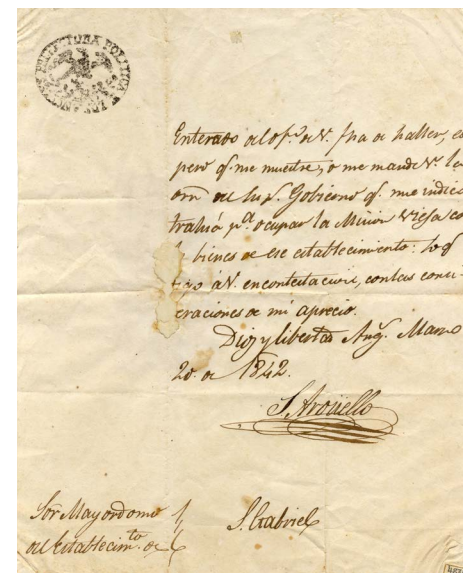 PREFECTURA POLITICA
Enterado del of.º de V. fha de haller, es
pero q.e me muestre, o me mande V. la
orn del Sup.r Gobierno q.e me indic
trahia p.a ocupar la Micion Viefa co
bienes de ese establecimiento: lo q
digo á V. en contestacion, con las consi
deraciones de mi aprecio.
Dios y libertad Ang.s Marzo
20. de 1842.
S. Arguello
Sor Mayordomo
del establecim.to de
S. Gabriel